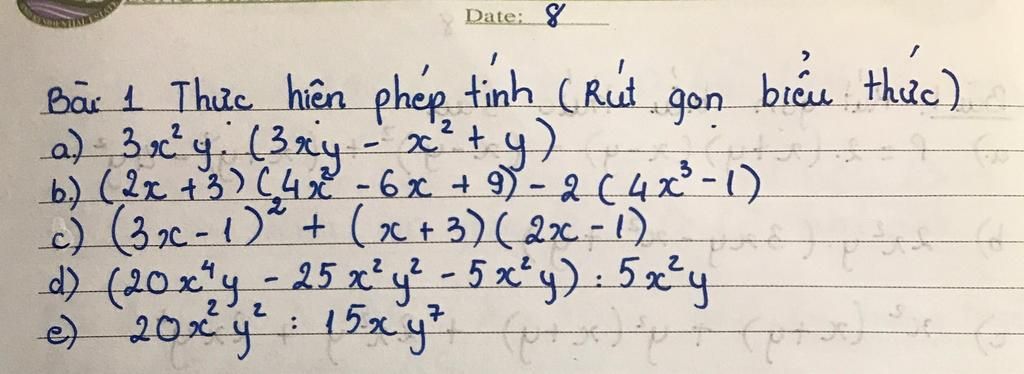 RESIDENTIAL ESTATE
Date: 8
Bài 1 Thực hiện phép tính (Rút gọn biểu thức)
a) 3x²y. (3xy - x² + y)
b) (2x + 3)(4x² - 6x + 9) - 2 (4x³ - 1)
c) (3x - 1)² + (x + 3)(2x - 1)
d) (20x⁴y - 25x²y² - 5x²y) : 5x²y
e) 20x²y² : 15xy⁷